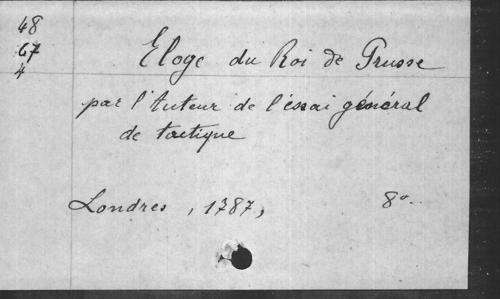 48
67
4
Eloge du Roi de Prusse
par l'Auteur de l'éssai général
de tactique
Londres, 1787, 8°.